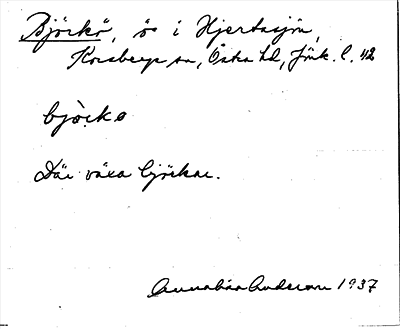 Björkö, ö i Hjertasjön,
Korsberga sn, Östra hd, Jönk. l. 42
bjö̀rkø
Där växa björkar.
Annabia Anderson 1937